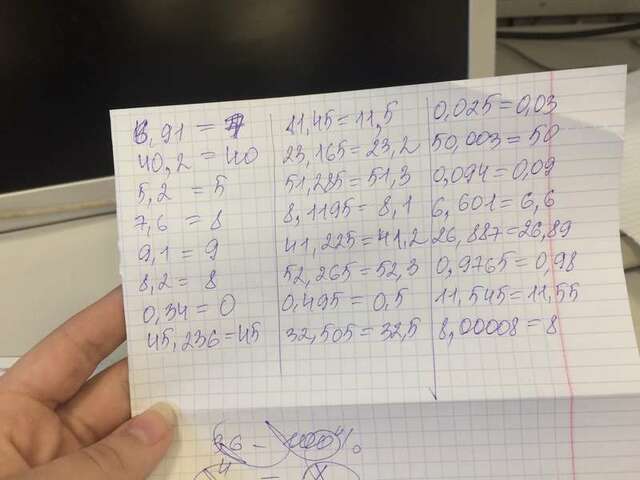 6,91 = 7
40,2 = 40
5,2 = 5
7,6 = 8
9,1 = 9
8,2 = 8
0,34 = 0
45,236 = 45
11,45 = 11,5
23,165 = 23,2
51,285 = 51,3
8,1195 = 8,1
41,225 = 41,2
52,265 = 52,3
0,495 = 0,5
32,505 = 32,5
0,025 = 0,03
50,003 = 50
0,094 = 0,09
6,601 = 6,6
26,887 = 26,89
0,9765 = 0,98
11,545 = 11,55
8,00008 = 8
36 – 100%
4 – x